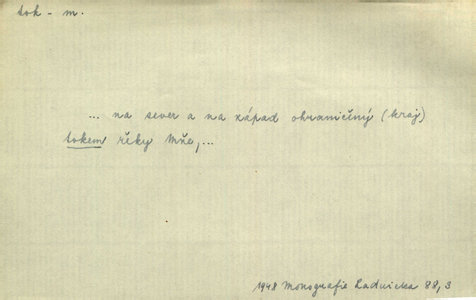 tok - m.
... na sever a na západ ohraničený (kraj)
tokem řeky Mže,...
1948 Monografie Ladnicka 88,3